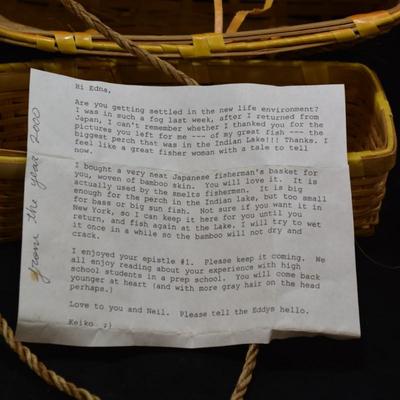 Hi Edna,
Are you getting settled in the new life environment?
I was in such a fog last week, after I returned from
Japan, I can't remember whether I thanked you for the
pictures you left for me --- of my great fish --- the
biggest perch that was in the Indian Lake!!! Thanks. I
feel like a great fisher woman with a tale to tell
now.
I bought a very neat Japanese fisherman's basket for
you, woven of bamboo skin. You will love it. It is
actually used by the smelts fishermen. It is big
enough for the perch in the Indian lake, but too small
for bass or big sun fish. Not sure if you want it in
New York, so I can keep it here for you until you
return, and fish again at the Lake. I will try to wet
it once in a while so the bamboo will not dry and
crack.
I enjoyed your epistle #1. Please keep it coming. We
all enjoy reading about your experience with high
school students in a prep school. You will come back
younger at heart (and with more gray hair on the head
perhaps.)
Love to you and Neil. Please tell the Eddys hello.
Keiko ;)
from the year 2000